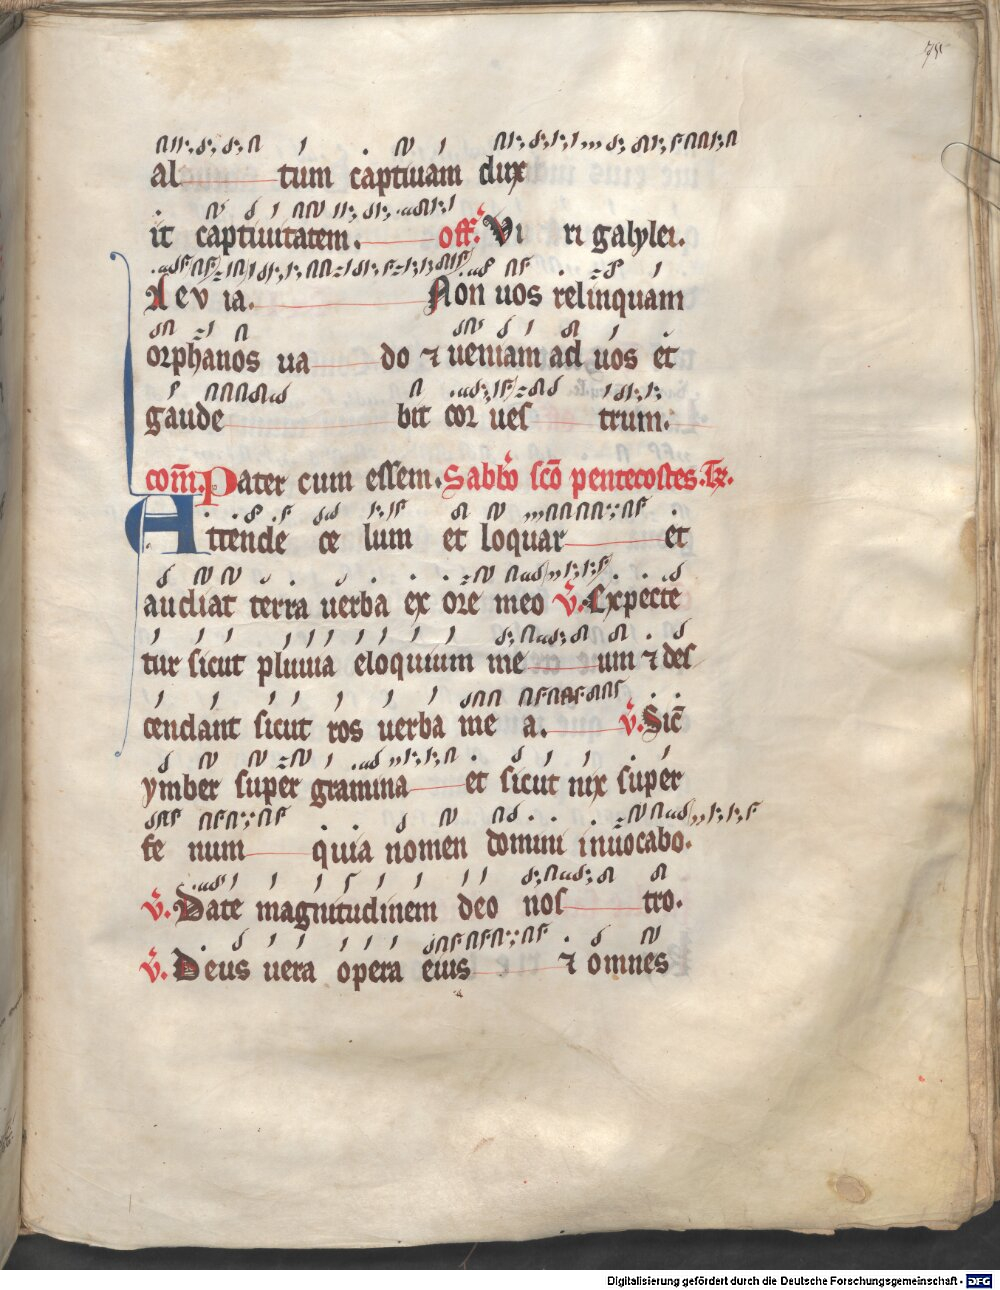 75
al tum captiuam dux
it captiuitatem. off. Vi ri galylei.
A e v ia. Non uos relinquam
orphanos ua do ⁊ ueniam ad uos et
gaude bit cor ues trum.
com̄. Pater cum essem. Sabb̄o sc̄o pentecostes. Tr.
Attende ce lum et loquar et
audiat terra uerba ex ore meo v̄. Expecte
tur sicut pluuia eloquium me um ⁊ des
cendant sicut ros uerba me a. v̄. Sic̄
ymber super gramina et sicut nix super
fe num quia nomen domini inuocabo.
v̄. Date magnitudinem deo nos tro.
v̄. Deus uera opera eius ⁊ omnes
Digitalisierung gefördert durch die Deutsche Forschungsgemeinschaft - DFG